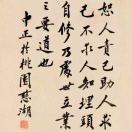 恕人責己助人求
己不求人知理頭
恕修乃處世立業
之要道也
中正於桃園慈湖